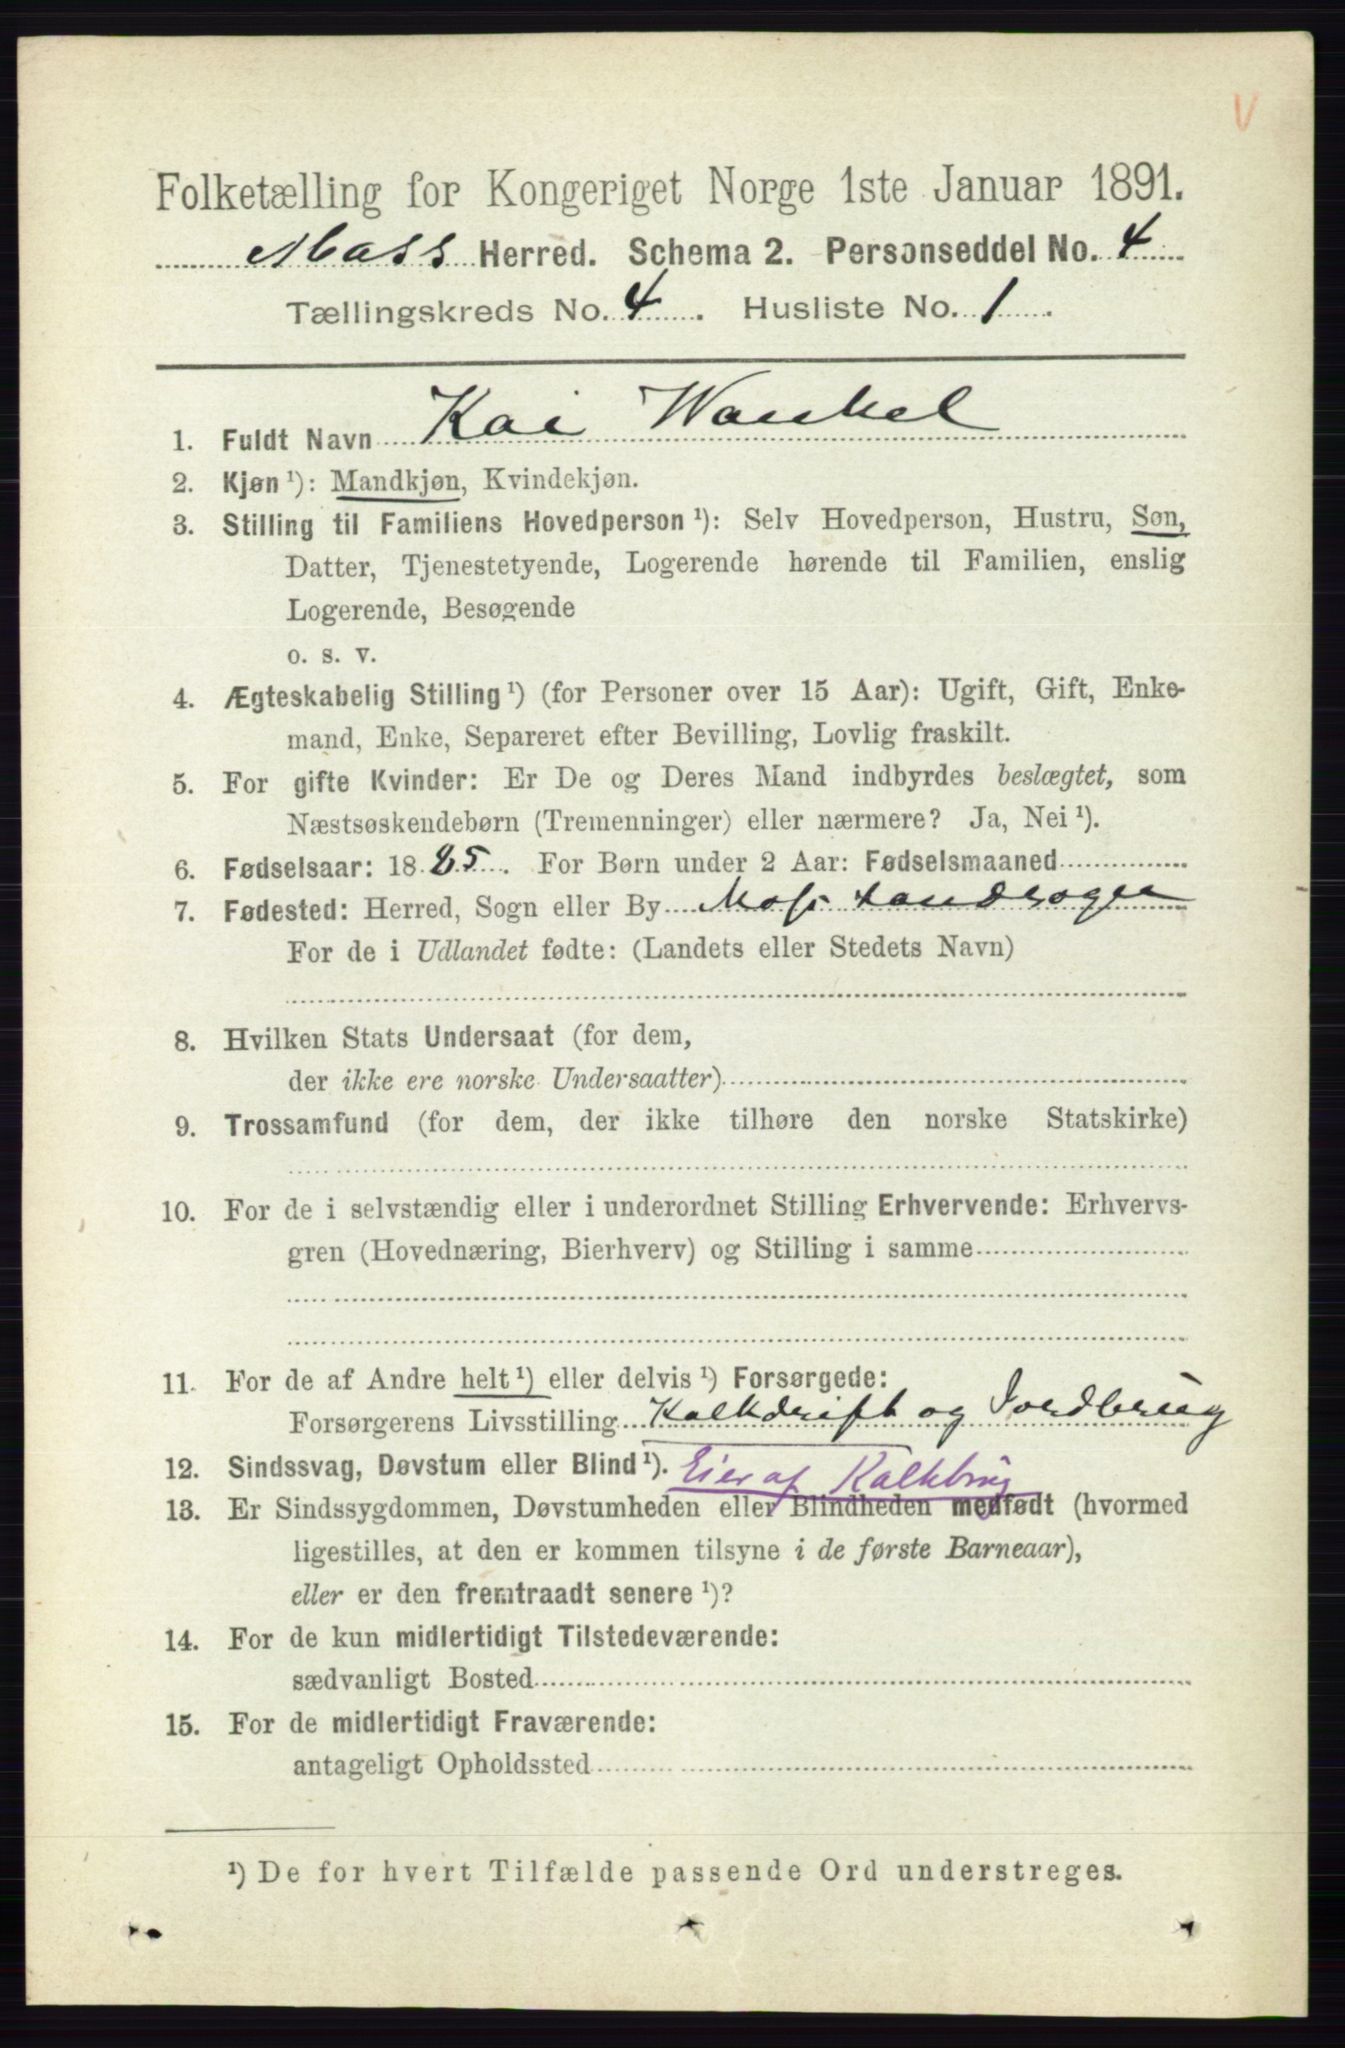 V
Folketælling for Kongeriget Norge 1ste Januar 1891.
Moss Herred. Schema 2. Personseddel No. 4
Tællingskreds No. 4. Husliste No. 1.
1. Fuldt Navn Kai Wankel
2. Kjøn ¹): Mandkjøn, Kvindekjøn.
3. Stilling til Familiens Hovedperson ¹): Selv Hovedperson, Hustru, Søn,
Datter, Tjenestetyende, Logerende hørende til Familien, enslig
Logerende, Besøgende
o. s. v.
4. Ægteskabelig Stilling ¹) (for Personer over 15 Aar): Ugift, Gift, Enke-
mand, Enke, Separeret efter Bevilling, Lovlig fraskilt.
5. For gifte Kvinder: Er De og Deres Mand indbyrdes beslægtet, som
Næstsøskendebørn (Tremenninger) eller nærmere? Ja, Nei ¹).
6. Fødselsaar: 1885. For Børn under 2 Aar: Fødselsmaaned
7. Fødested: Herred, Sogn eller By Moss Landsogn
For de i Udlandet fødte: (Landets eller Stedets Navn)
8. Hvilken Stats Undersaat (for dem,
der ikke ere norske Undersaatter)
9. Trossamfund (for dem, der ikke tilhøre den norske Statskirke)
10. For de i selvstændig eller i underordnet Stilling Erhvervende: Erhvervs-
gren (Hovednæring, Bierhverv) og Stilling i samme
11. For de af Andre helt ¹) eller delvis ¹) Forsørgede:
Forsørgerens Livsstilling Kalkdrift og Jordbrug
12. Sindssvag, Døvstum eller Blind ¹). Eier af Kalkbrug
13. Er Sindssygdommen, Døvstumheden eller Blindheden medfødt (hvormed
ligestilles, at den er kommen tilsyne i de første Barneaar),
eller er den fremtraadt senere ¹)?
14. For de kun midlertidigt Tilstedeværende:
sædvanligt Bosted
15. For de midlertidigt Fraværende:
antageligt Opholdssted
¹) De for hvert Tilfælde passende Ord understreges.